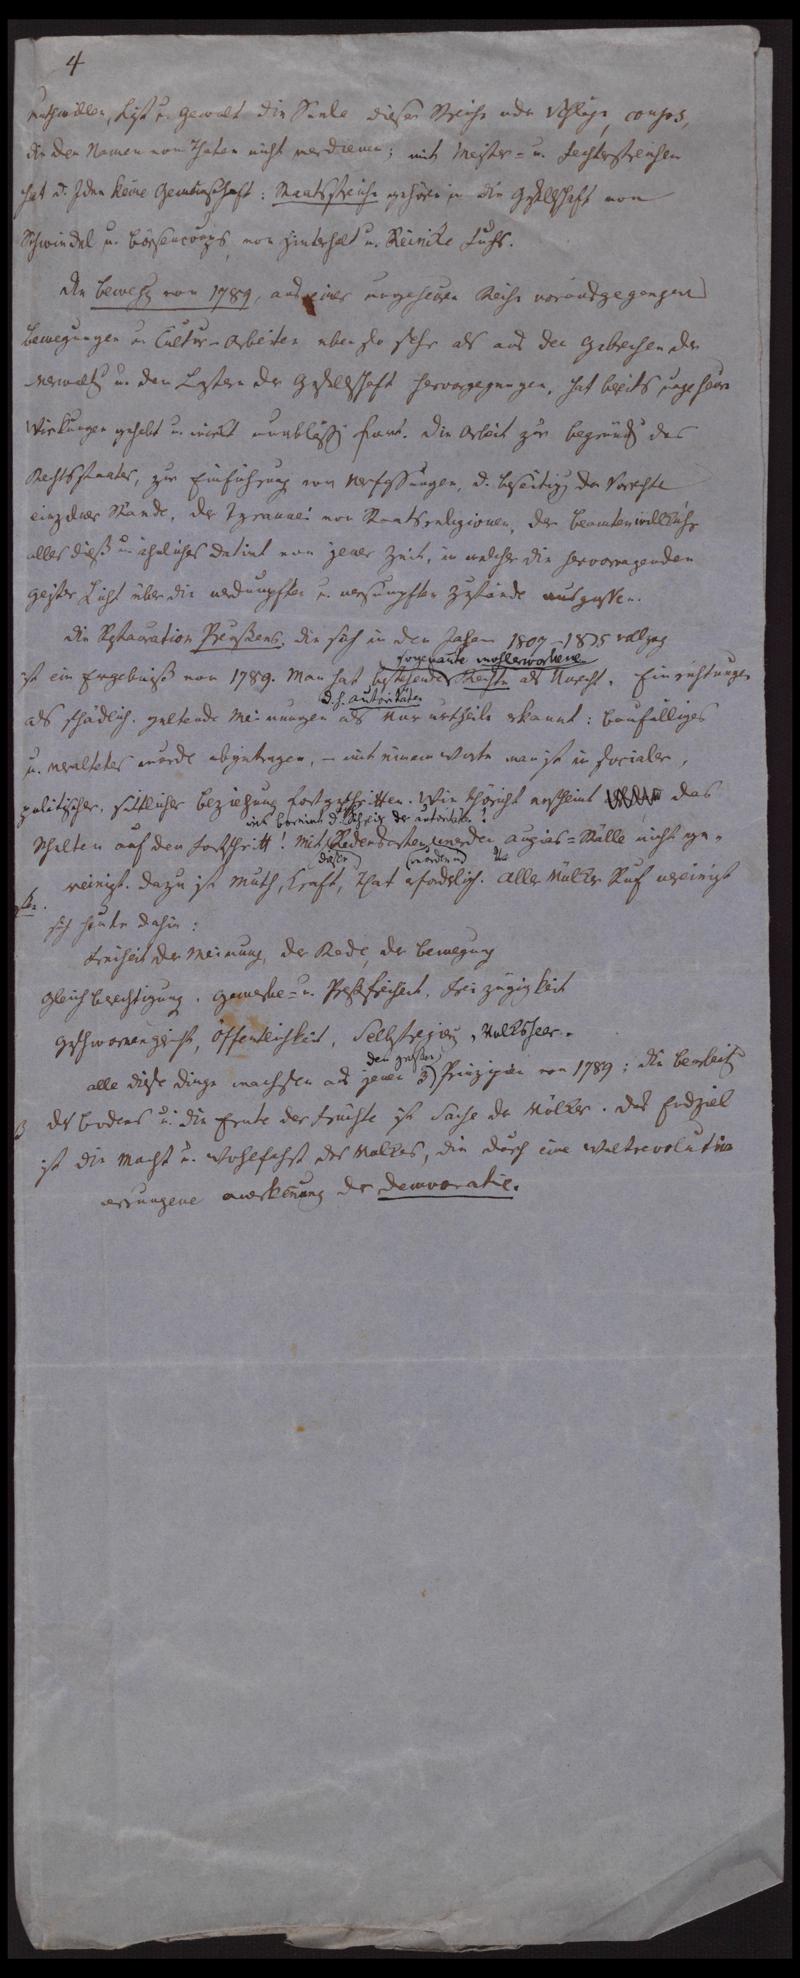 4
Muthwillen, List u. Gewalt die Seele dieser Streiche oder Schläge, coups,
die den Namen von Thaten nicht verdienen; mit Meister- u. Fechterstreichen
hat d. Idee keine Gemeinschaft: Staatsstreiche gehören in die Gesellschaft von
Schwindel u. Börsencoups, von Hinterhalt u. Reinike Fuchs.
Die Bewegg von 1789, aus einer ungeheuren Reihe vorausgegangener
Bewegungen u. Cultur-Arbeiten eben so sehr als aus den Gebrechen der
Verwaltg u. den Lastern der Gesellschaft hervorgegangen, hat bereits ungeheure
Wirkungen gehabt u. wirkt unablässig fort. Die Arbeit zur Begründg des
Rechtsstaates, zur Einführung von Verfassungen, d. Beseitigg der Vorrechte
einzelner Stände, der Tyrannei von Staatsreligionen, der Beamtenwillkühr
alles dieß u. ähnliches datirt von jener Zeit, in welcher die hervorragenden
Geister Licht über die verdumpften u. versumpften Zustände ausgossen.
Die Restauration Preußens, die sich in den Jahren 1807-1815 vollzog
sogenannte wohlerworbene
ist ein Ergebniß von 1789. Man hat bestehende Rechte als Unrecht, Einrichtungen
d. h. Autoritäten
als schädlich, geltende Meinungen als Vorurtheile erkannt: baufälliges
u. veraltetes wurde abgetragen, – mit einem Worte man ist in socialer,
politischer, sittlicher Beziehung fortgeschritten. Wie thöricht erscheint das
wie bornirt d. Schrei der Autorität!
Schelten auf den Fortschritt! Mit Redensarten werden Augias-Ställe nicht ge-
reinigt. Dazu ist Muth, Kraft, That erforderlich. Aller Völker Ruf vereinigt
sich heute dahin:
Freiheit der Meinung, der Rede, der Bewegung
Gleichberechtigung, Gewerbe- u. Preßfreiheit, Freizügigkeit
Geschwornengericht, Öffentlichkeit, Selbstregierg, Volksheer.
den großen
alle diese Dinge wachsen aus jenen 3) Prinzipien von 1789; die Bearbeitg
des Bodens u. die Ernte der Früchte ist Sache der Völker. Das Endziel
ist die Macht u. Wohlfahrt des Volkes, die durch eine Weltrevolution
errungene Anerkennung der Democratie.